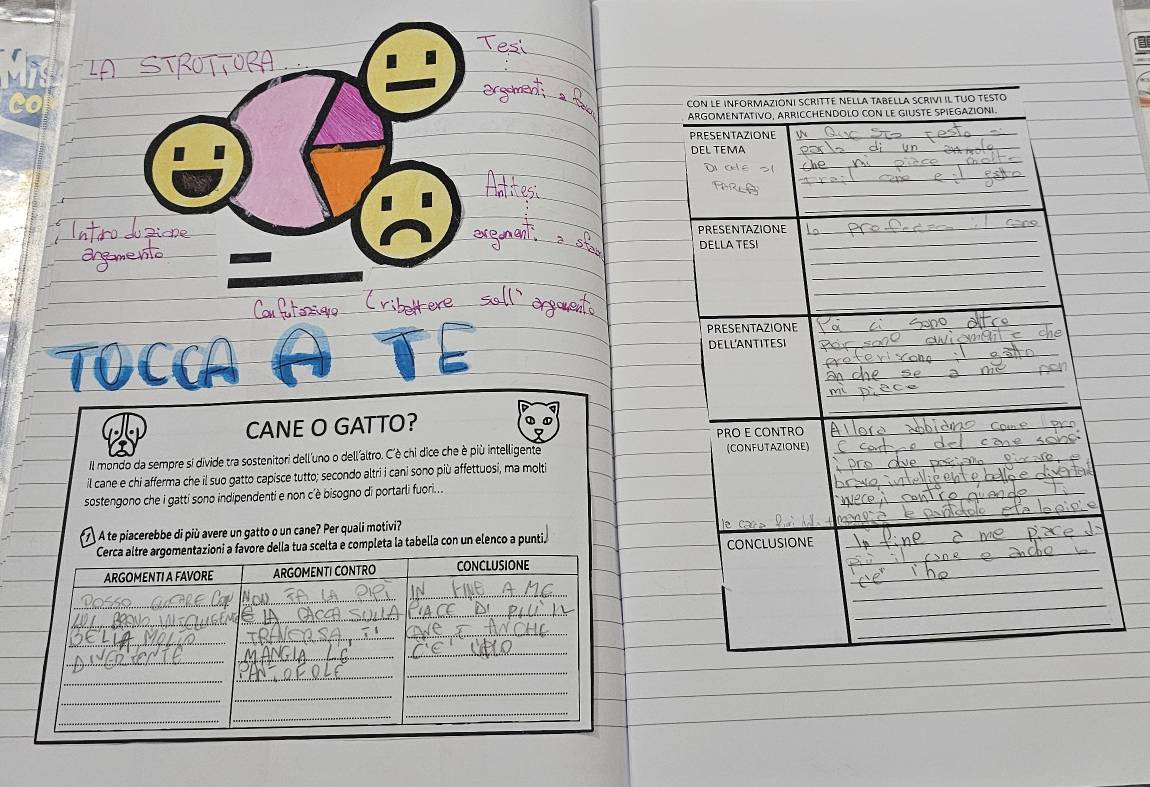 LA STRUTTURA...
Tesi
argomenti a
Antitesi
argomenti a
Introduzione
argomento
Confutazione (ribattere sull' argomento
TOCCA A TE
CANE O GATTO?
Il mondo da sempre si divide tra sostenitori dell'uno o dell'altro. C'è chi dice che è più intelligente
il cane e chi afferma che il suo gatto capisce tutto; secondo altri i cani sono più affettuosi, ma molti
sostengono che i gatti sono indipendenti e non c'è bisogno di portarli fuori...
A te piacerebbe di più avere un gatto o un cane? Per quali motivi?
Cerca altre argomentazioni a favore della tua scelta e completa la tabella con un elenco a punti.
ARGOMENTI A FAVORE
POSSO
BRAVO
BELLA
DIVERTENTE
ARGOMENTI CONTRO
NON FA LA PIPI
E LA CACCA SULLA
TRAVERSA, TI
MANGIA LE
PANTOFOLE
CONCLUSIONE
IN FINE A ME
PIACE DI PIU IL
ANCHE
C'E
CON LE INFORMAZIONI SCRITTE NELLA TABELLA SCRIVI IL TUO TESTO
ARGOMENTATIVO, ARRICCHENDOLO CON LE GIUSTE SPIEGAZIONI.
PRESENTAZIONE
DEL TEMA
DI CHE SI
PARLA
testo si
parla di un
che mi piace molto
cane e il gatto
PRESENTAZIONE
DELLA TESI
Io il cane
PRESENTAZIONE
DELL'ANTITESI
ci sono altre
che
il gatto
an che se a me non
mi piece
PRO E CONTRO
(CONFUTAZIONE)
Allora abbiamo come pro
e contro del cane sono:
i pro
bravo intelligente bello e
invece i contro quando ti
mangia le e fa la pipi e
CONCLUSIONE
In fine a me piace di
più il cane e anche
ce